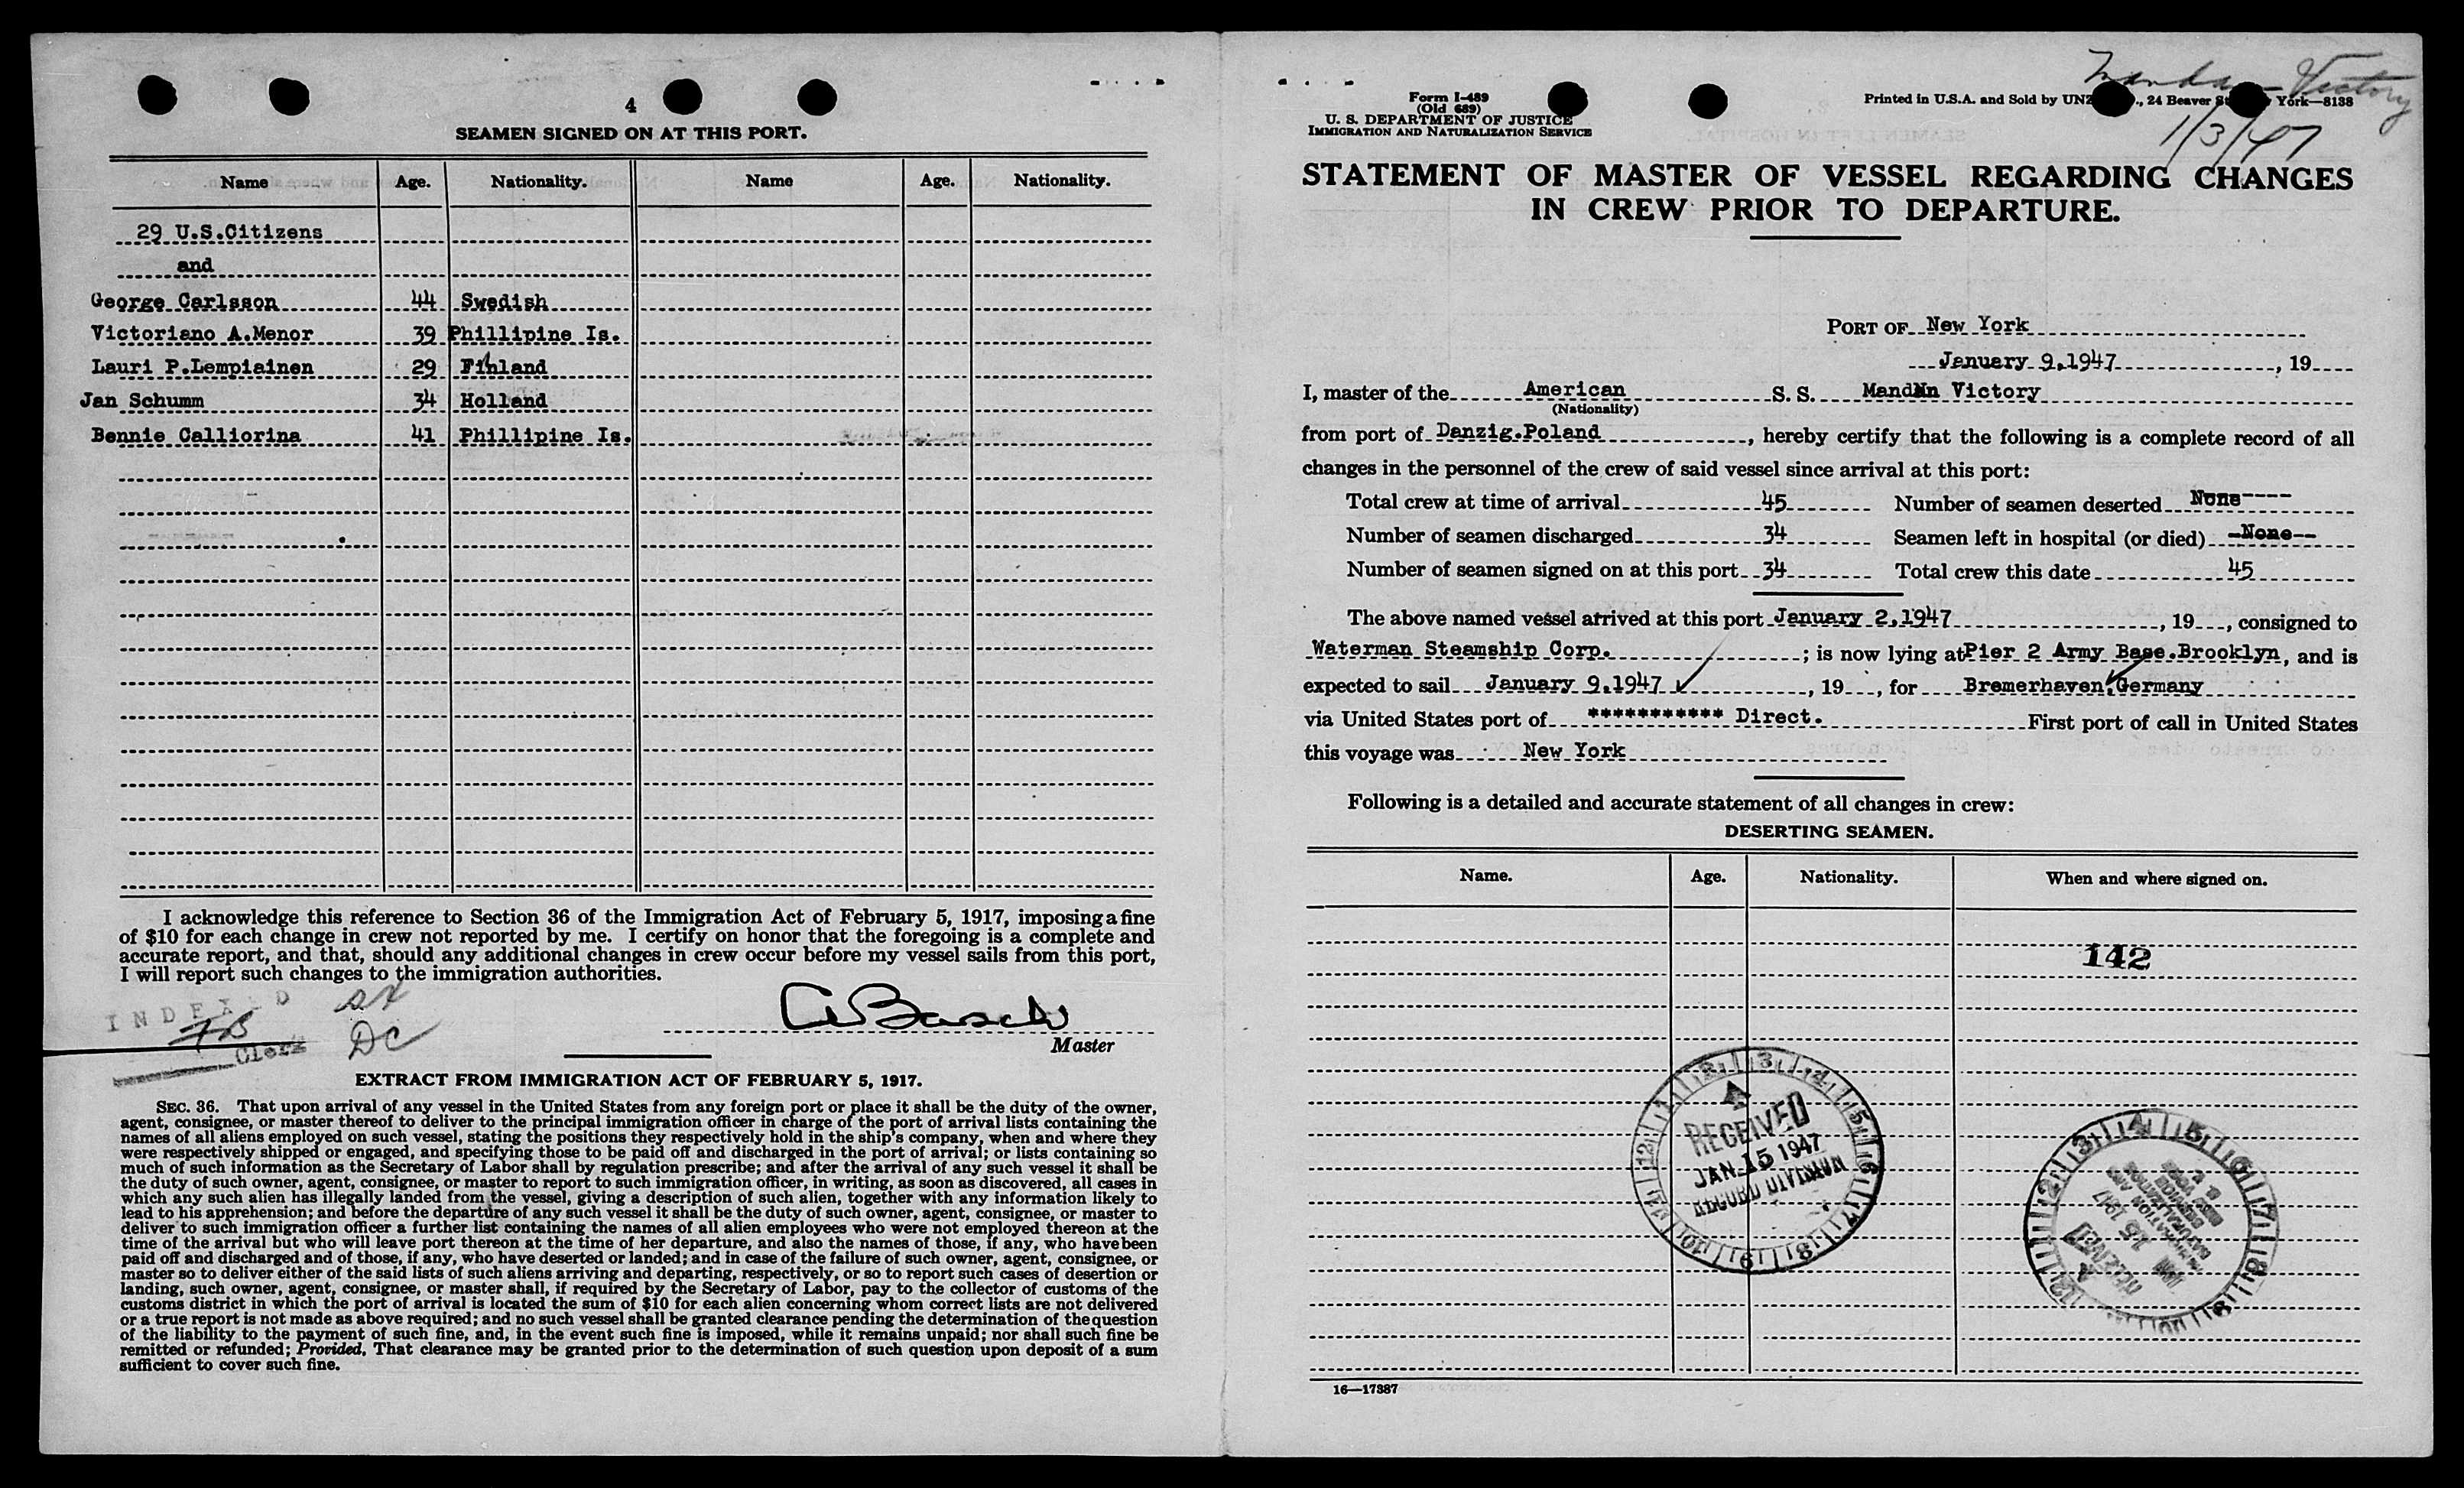 4
SEAMEN SIGNED ON AT THIS PORT.
Name Age. Nationality. Name Age. Nationality.
29 U.S.Citizens
and
George Carlsson 44 Swedish
Victoriano A.Menor 39 Phillipine Is.
Lauri P.Lempiainen 29 Finland
Jan Schumm 34 Holland
Bennie Calliorina 41 Phillipine Is.
I acknowledge this reference to Section 36 of the Immigration Act of February 5, 1917, imposing a fine
of $10 for each change in crew not reported by me. I certify on honor that the foregoing is a complete and
accurate report, and that, should any additional changes in crew occur before my vessel sails from this port,
I will report such changes to the immigration authorities.
INDEXED
Clerk DC
Master
EXTRACT FROM IMMIGRATION ACT OF FEBRUARY 5, 1917.
SEC. 36. That upon arrival of any vessel in the United States from any foreign port or place it shall be the duty of the owner,
agent, consignee, or master thereof to deliver to the principal immigration officer in charge of the port of arrival lists containing the
names of all aliens employed on such vessel, stating the positions they respectively hold in the ship's company, when and where they
were respectively shipped or engaged, and specifying those to be paid off and discharged in the port of arrival; or lists containing so
much of such information as the Secretary of Labor shall by regulation prescribe; and after the arrival of any such vessel it shall be
the duty of such owner, agent, consignee, or master to report to such immigration officer, in writing, as soon as discovered, all cases in
which any such alien has illegally landed from the vessel, giving a description of such alien, together with any information likely to
lead to his apprehension; and before the departure of any such vessel it shall be the duty of such owner, agent, consignee, or master to
deliver to such immigration officer a further list containing the names of all alien employees who were not employed thereon at the
time of the arrival but who will leave port thereon at the time of her departure, and also the names of those, if any, who have been
paid off and discharged and of those, if any, who have deserted or landed; and in case of the failure of such owner, agent, consignee, or
master so to deliver either of the said lists of such aliens arriving and departing, respectively, or so to report such cases of desertion or
landing, such owner, agent, consignee, or master shall, if required by the Secretary of Labor, pay to the collector of customs of the
customs district in which the port of arrival is located the sum of $10 for each alien concerning whom correct lists are not delivered
or a true report is not made as above required; and no such vessel shall be granted clearance pending the determination of the question
of the liability to the payment of such fine, and, in the event such fine is imposed, while it remains unpaid; nor shall such fine be
remitted or refunded; Provided, That clearance may be granted prior to the determination of such question upon deposit of a sum
sufficient to cover such fine.
Victory
1/3/47
Form I-489
(Old 689)
U. S. DEPARTMENT OF JUSTICE
IMMIGRATION AND NATURALIZATION SERVICE
Printed in U.S.A. and Sold by UNZ , 24 Beaver York—8138
STATEMENT OF MASTER OF VESSEL REGARDING CHANGES
IN CREW PRIOR TO DEPARTURE.
PORT OF New York
January 9,1947, 19
I, master of the American S. S. Mandan Victory
(Nationality)
from port of Danzig.Poland, hereby certify that the following is a complete record of all
changes in the personnel of the crew of said vessel since arrival at this port:
Total crew at time of arrival 45 Number of seamen deserted None----
Number of seamen discharged 34 Seamen left in hospital (or died) -None--
Number of seamen signed on at this port 34 Total crew this date 45
The above named vessel arrived at this port January 2,1947, 19, consigned to
Waterman Steamship Corp.; is now lying at Pier 2 Army Base.Brooklyn, and is
expected to sail January 9,1947, 19, for Bremerhaven,Germany
via United States port of *********** Direct. First port of call in United States
this voyage was New York
Following is a detailed and accurate statement of all changes in crew:
DESERTING SEAMEN.
Name. Age. Nationality. When and where signed on.
142
RECEIVED
JAN 15 1947
RECORD DIVISION
RECEIVED
JAN 15 1947
16—17387